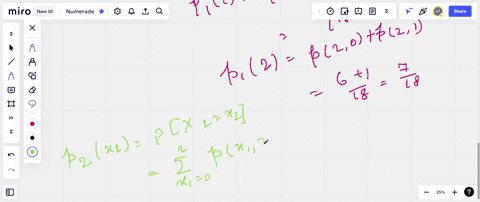 miro Numerade Share
p₁(
p₁(2) = p(2,0)+p(2,1)
= 6+1/18 = 7/18
p₂(x2) = P[X2=x2]
= 2∑x₁=0 p(x₁,
25%